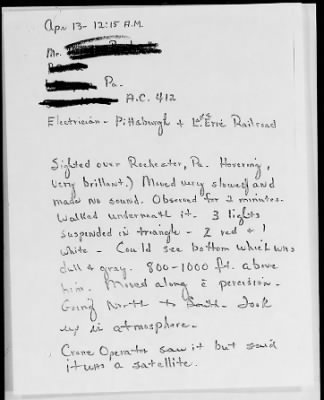 Apr 13 - 12:15 A.M.
Mr.
Pa.
A.C. 412
Electrician - Pittsburgh & Lake Erie Railroad
Sighted over Rochester, Pa. Hovering,
very brilliant.) Moved very slowly and
made no sound. Observed for 2 minutes.
Walked underneath it. 3 lights
suspended in triangle - 2 red & 1
white - Could see bottom which was
dull & gray. 800-1000 ft. above
him. Moved along c̄ percision.
Going North to South. Took
up in atmosphere.
Crane Operator saw it but said
it was a satellite.